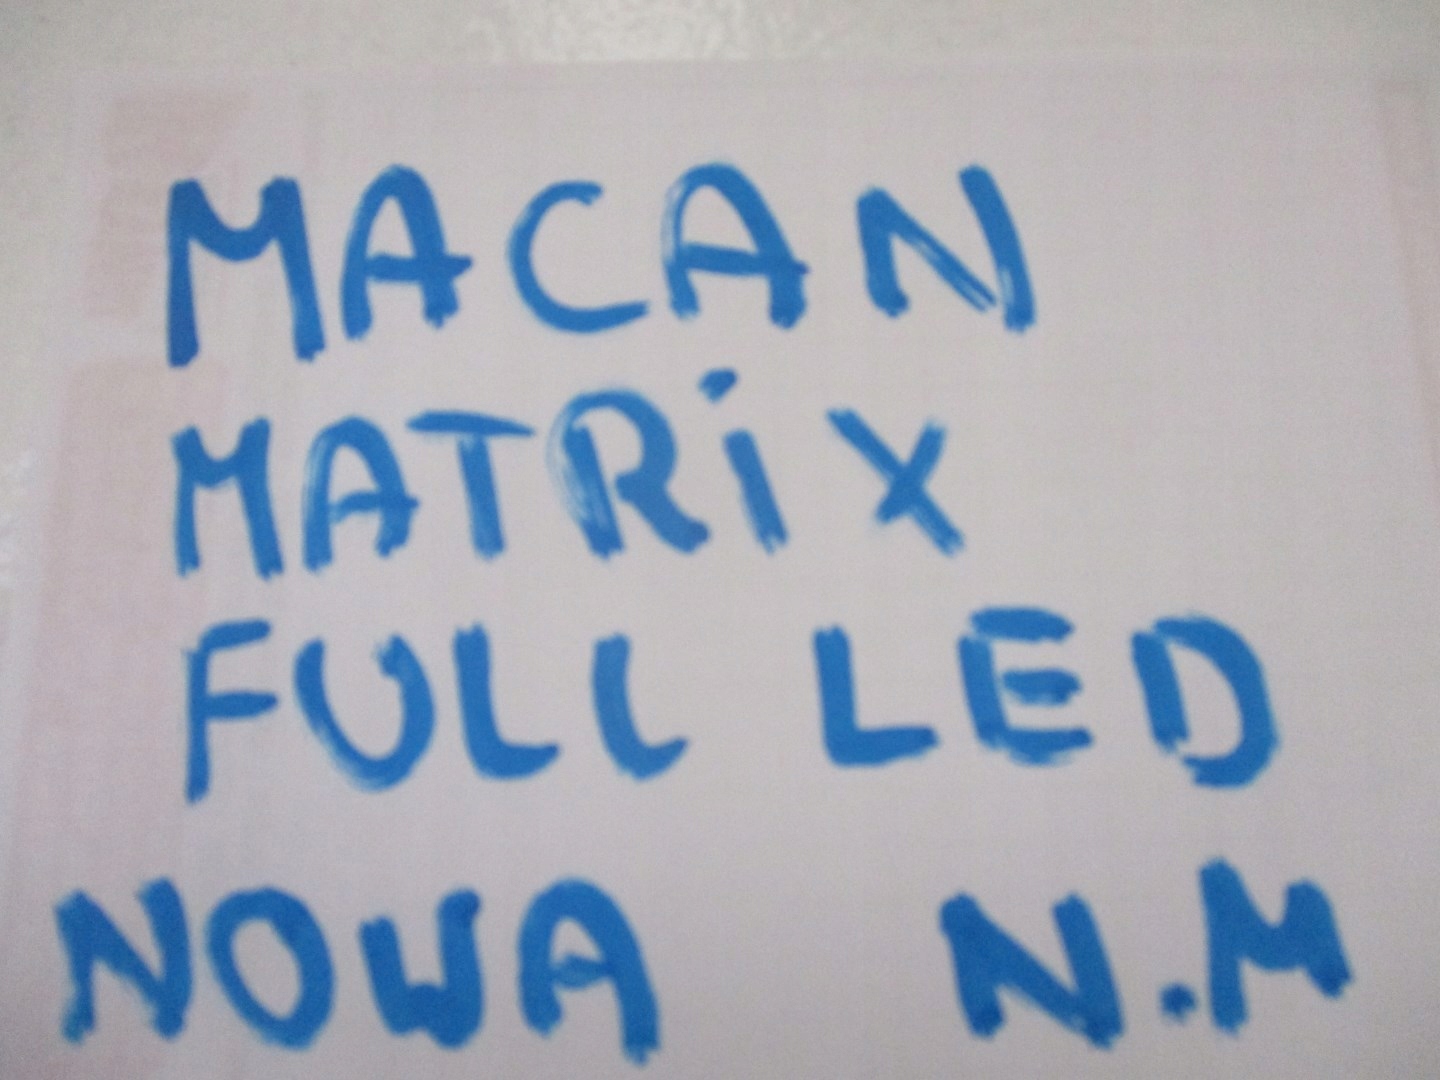 MACAN
MATRiX
FULL LED
NOWA N.M